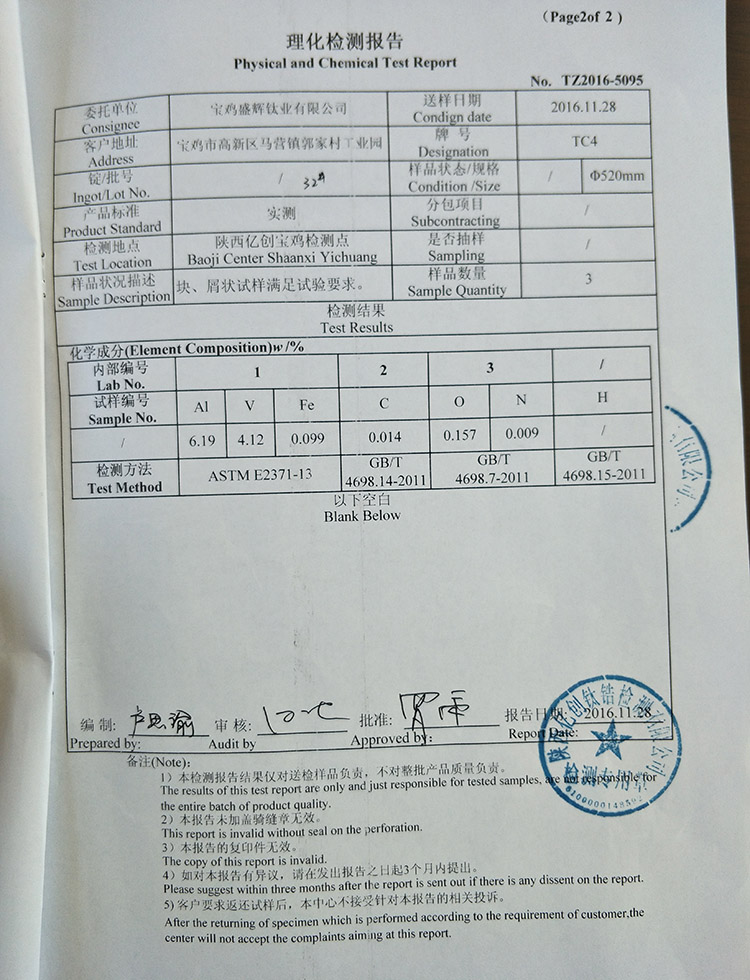 （Page2of 2 )
理化检测报告
Physical and Chemical Test Report
No. TZ2016-5095
委托单位 宝鸡盛辉钛业有限公司 送样日期 2016.11.28
Consignee Condign date
客户地址 宝鸡市高新区马营镇郭家村工业园 牌 号 TC4
Address Designation
锭/批号 / 32# 样品状态/规格 / Φ520mm
Ingot/Lot No. Condition /Size
产品标准 实测 分包项目 /
Product Standard Subcontracting
检测地点 陕西亿创宝鸡检测点 是否抽样 /
Test Location Baoji Center Shaanxi Yichuang Sampling
样品状况描述 块、屑状试样满足试验要求。 样品数量 3
Sample Description Sample Quantity
检测结果
Test Results
化学成分(Element Composition)w /%
内部编号 1 2 3 /
Lab No.
试样编号 Al V Fe C O N H
Sample No.
/ 6.19 4.12 0.099 0.014 0.157 0.009 /
检测方法 ASTM E2371-13 GB/T GB/T GB/T
Test Method 4698.14-2011 4698.7-2011 4698.15-2011
以下空白
Blank Below
有限公司
编 制: 审 核: 批准: 报告日期: 2016.11.28
Prepared by: Audit by Approved by: Report Date:
陕西亿创钛锆检测有限公司
检测专用章
备注(Note):
1）本检测报告结果仅对送检样品负责，不对整批产品质量负责。
The results of this test report are only and just responsible for tested samples, are not responsible for
the entire batch of product quality.
2）本报告未加盖骑缝章无效。
This report is invalid without seal on the perforation.
3）本报告的复印件无效。
The copy of this report is invalid.
4）如对本报告有异议，请在发出报告之日起3个月内提出。
Please suggest within three months after the report is sent out if there is any dissent on the report.
5) 客户要求返还试样后，本中心不接受针对本报告的相关投诉。
After the returning of specimen which is performed according to the requirement of customer,the
center will not accept the complaints aiming at this report.